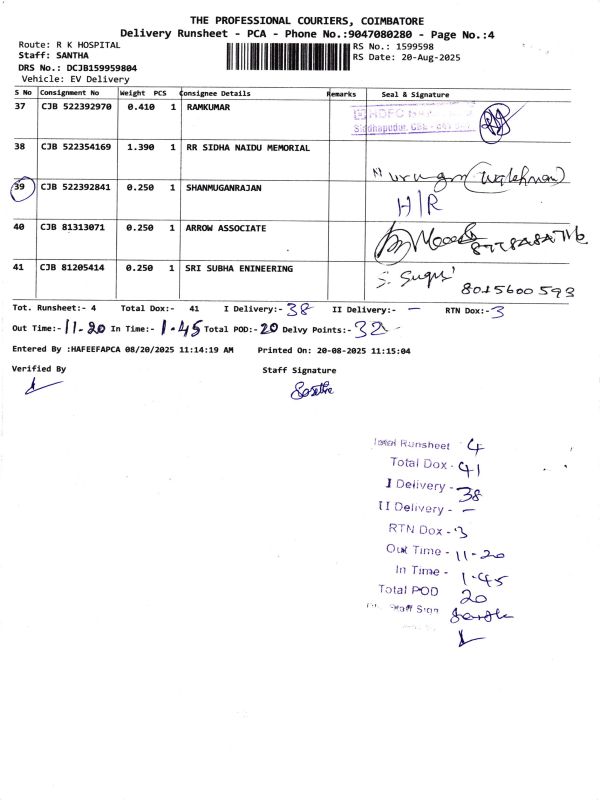 THE PROFESSIONAL COURIERS, COIMBATORE
Delivery Runsheet - PCA - Phone No.:9047080280 - Page No.:4
Route: R K HOSPITAL
RS No.: 1599598
Staff: SANTHA
RS Date: 20-Aug-2025
DRS No.: DCJB159959804
Vehicle: EV Delivery
S No Consignment No Weight PCS Consignee Details Remarks Seal & Signature
37 CJB 522392970 0.410 1 RAMKUMAR
38 CJB 522354169 1.390 1 RR SIDHA NAIDU MEMORIAL
Murugan (watchman)
39 CJB 522392841 0.250 1 SHANMUGANRAJAN
H/R
40 CJB 81313071 0.250 1 ARROW ASSOCIATE
41 CJB 81205414 0.250 1 SRI SUBHA ENINEERING
8015600593
Tot. Runsheet:- 4 Total Dox:- 41 I Delivery:- 38 II Delivery:- - RTN Dox:- 3
Out Time:- 11-20 In Time:- 1-45 Total POD:- 20 Delvy Points:- 32 -
Entered By :HAFEEFAPCA 08/20/2025 11:14:19 AM Printed On: 20-08-2025 11:15:04
Verified By Staff Signature
Runsheet 4
Total Dox - 41
I Delivery - 38
II Delivery - -
RTN Dox - 3
Out Time - 11-20
In Time - 1-45
Total POD 20
Staff Sign